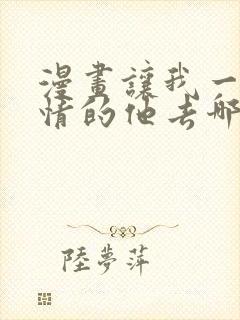 漫畫讓我一
情的他去哪
陸夢萍